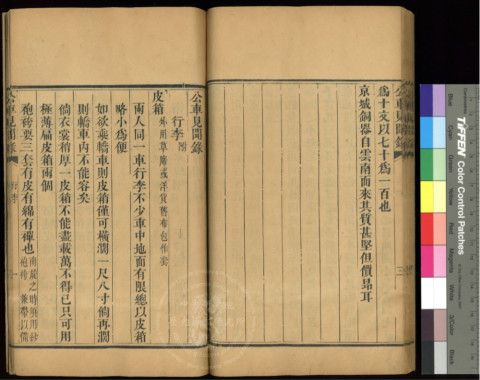 爲十文以七十爲一百也
京城銅器自雲南而來其質甚堅但價昂耳
三
公車見聞錄
行李附
皮箱外用草席或洋貨舊布包作套
兩人同一車行李不少車中地面有限總以皮箱
略小爲便
如欲套轎車則皮箱僅可橫濶一尺八寸倘再濶
則轎車內不能容矣
倘衣裳稍厚一皮箱不能盡載萬不得已只可用
極薄扁皮箱兩個
袍褂要三套有皮有綿有褌也
公車見聞錄
行李
一
TIFFEN Color Control Patches
Blue
Green
Yellow
Red
Magenta
White
3/Color
Black